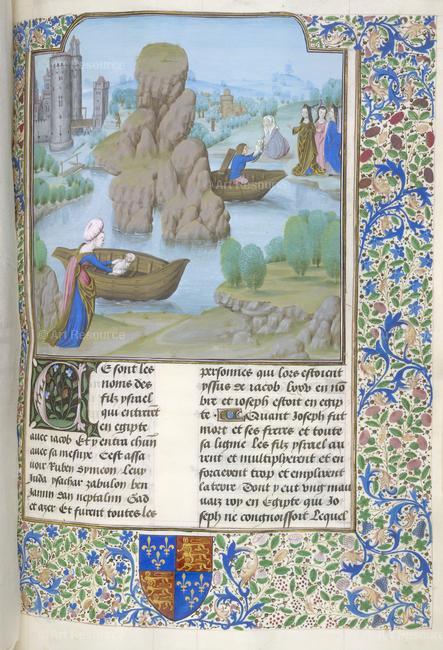 Ce sont les
noms des
filz ysrael
qui entrerēt
en egipte
avec iacob Et y entra chūn
avec sa mesnye Cest assa
voir Ruben symeon Levy
Iuda ysachar zabulon ben
iamin Dan neptalim Gad
et azer Et furent toutes les
personnes qui lors estoient
yssus de iacob lxxv en nō
bre et ioseph estoit en egip
te Quant Joseph fut
mort et ses freres et toute
sa ligne les filz ysrael cru
rent et multiplierent et en
forcerent trop et emplirent
la terre Dont y eut ung mau
vaiz roy en Egipte qui Jo
seph ne congnoissoit Lequel
© Art Resource
Art Resource